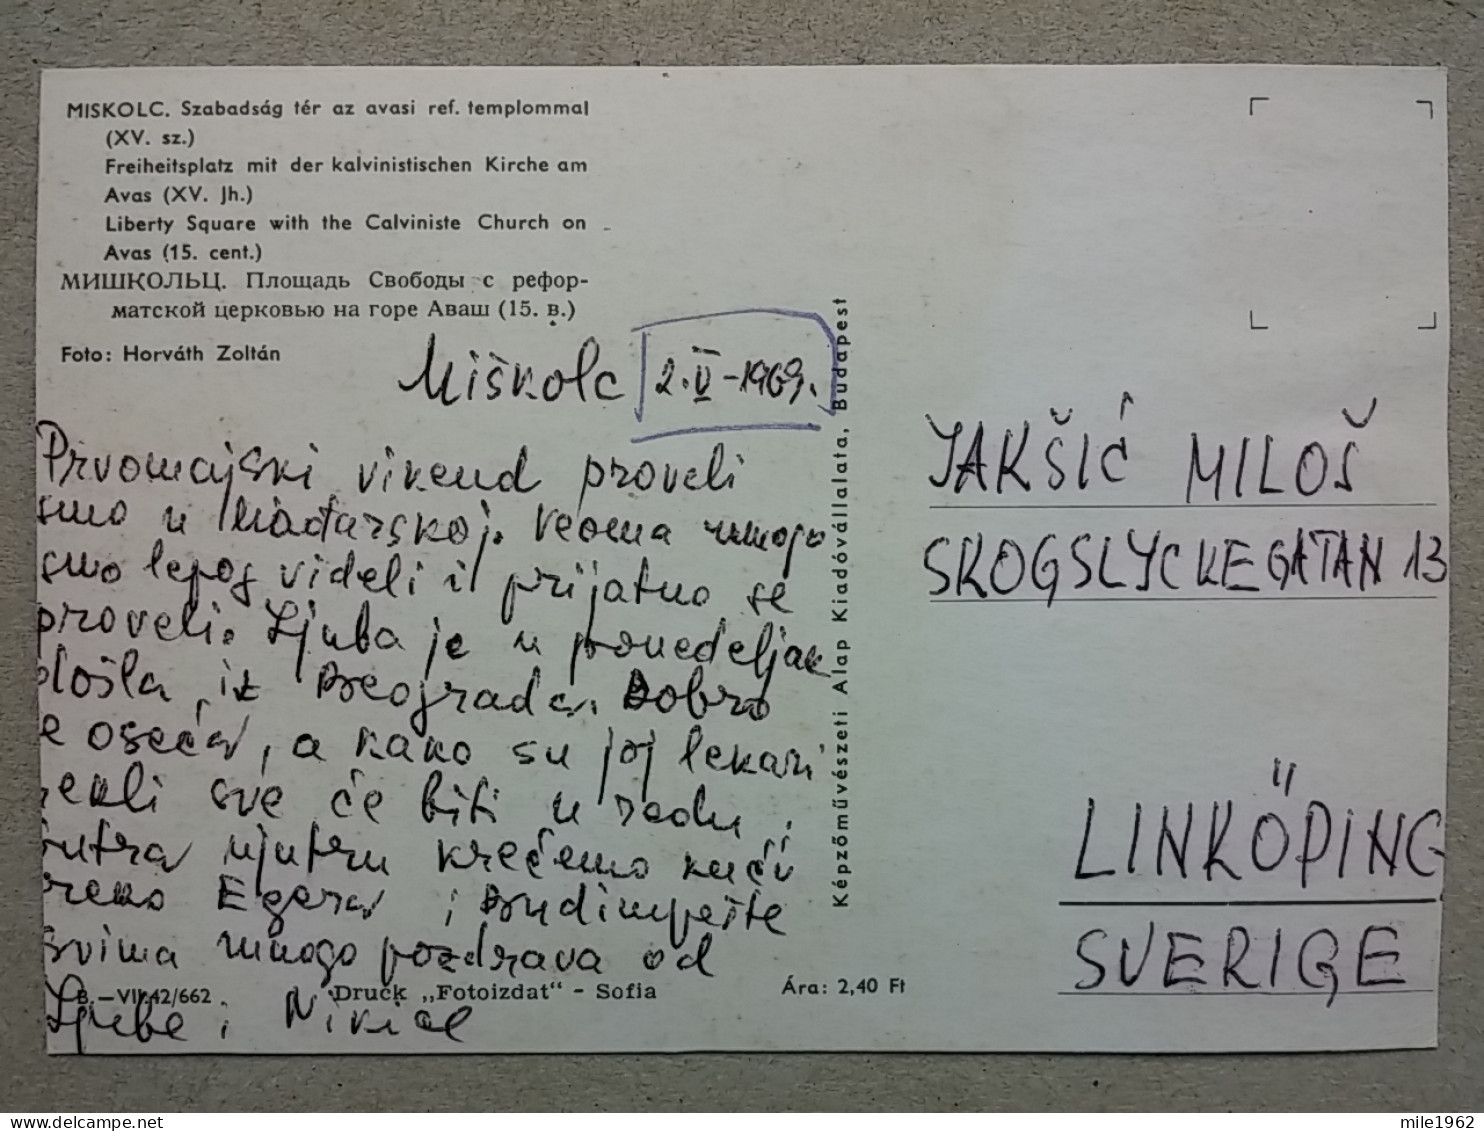 MISKOLC. Szabadság tér az avasi ref. templommal
(XV. sz.)
Freiheitsplatz mit der kalvinistischen Kirche am
Avas (XV. Jh.)
Liberty Square with the Calviniste Church on
Avas (15. cent.)
МИШКОЛЬЦ. Площадь Свободы с рефор-
матской церковью на горе Аваш (15. в.)
Foto: Horváth Zoltán
Miškolc 2.V-1969.
Prvomajski vikend proveli
smo u Mađarskoj. Veoma mnogo
smo lepog videli i prijatno se
proveli. Ljuba je u ponedeljak
došla iz Beograda. Dobro
se oseća, a kako su joj lekari
rekli sve će biti u redu.
Sutra ujutru krećemo kući
preko Egera i Budimpešte
Svima mnogo pozdrava od
Ljube i
B.—VII 42/662
Druck „Fotoizdat" - Sofia
Ára: 2,40 Ft
Képzőművészeti Alap Kiadóvállalata, Budapest
JAKŠIĆ MILOŠ
SKOGSLYCKEGATAN 13
LINKÖPING
SVERIGE
delcampe.net
mile1962